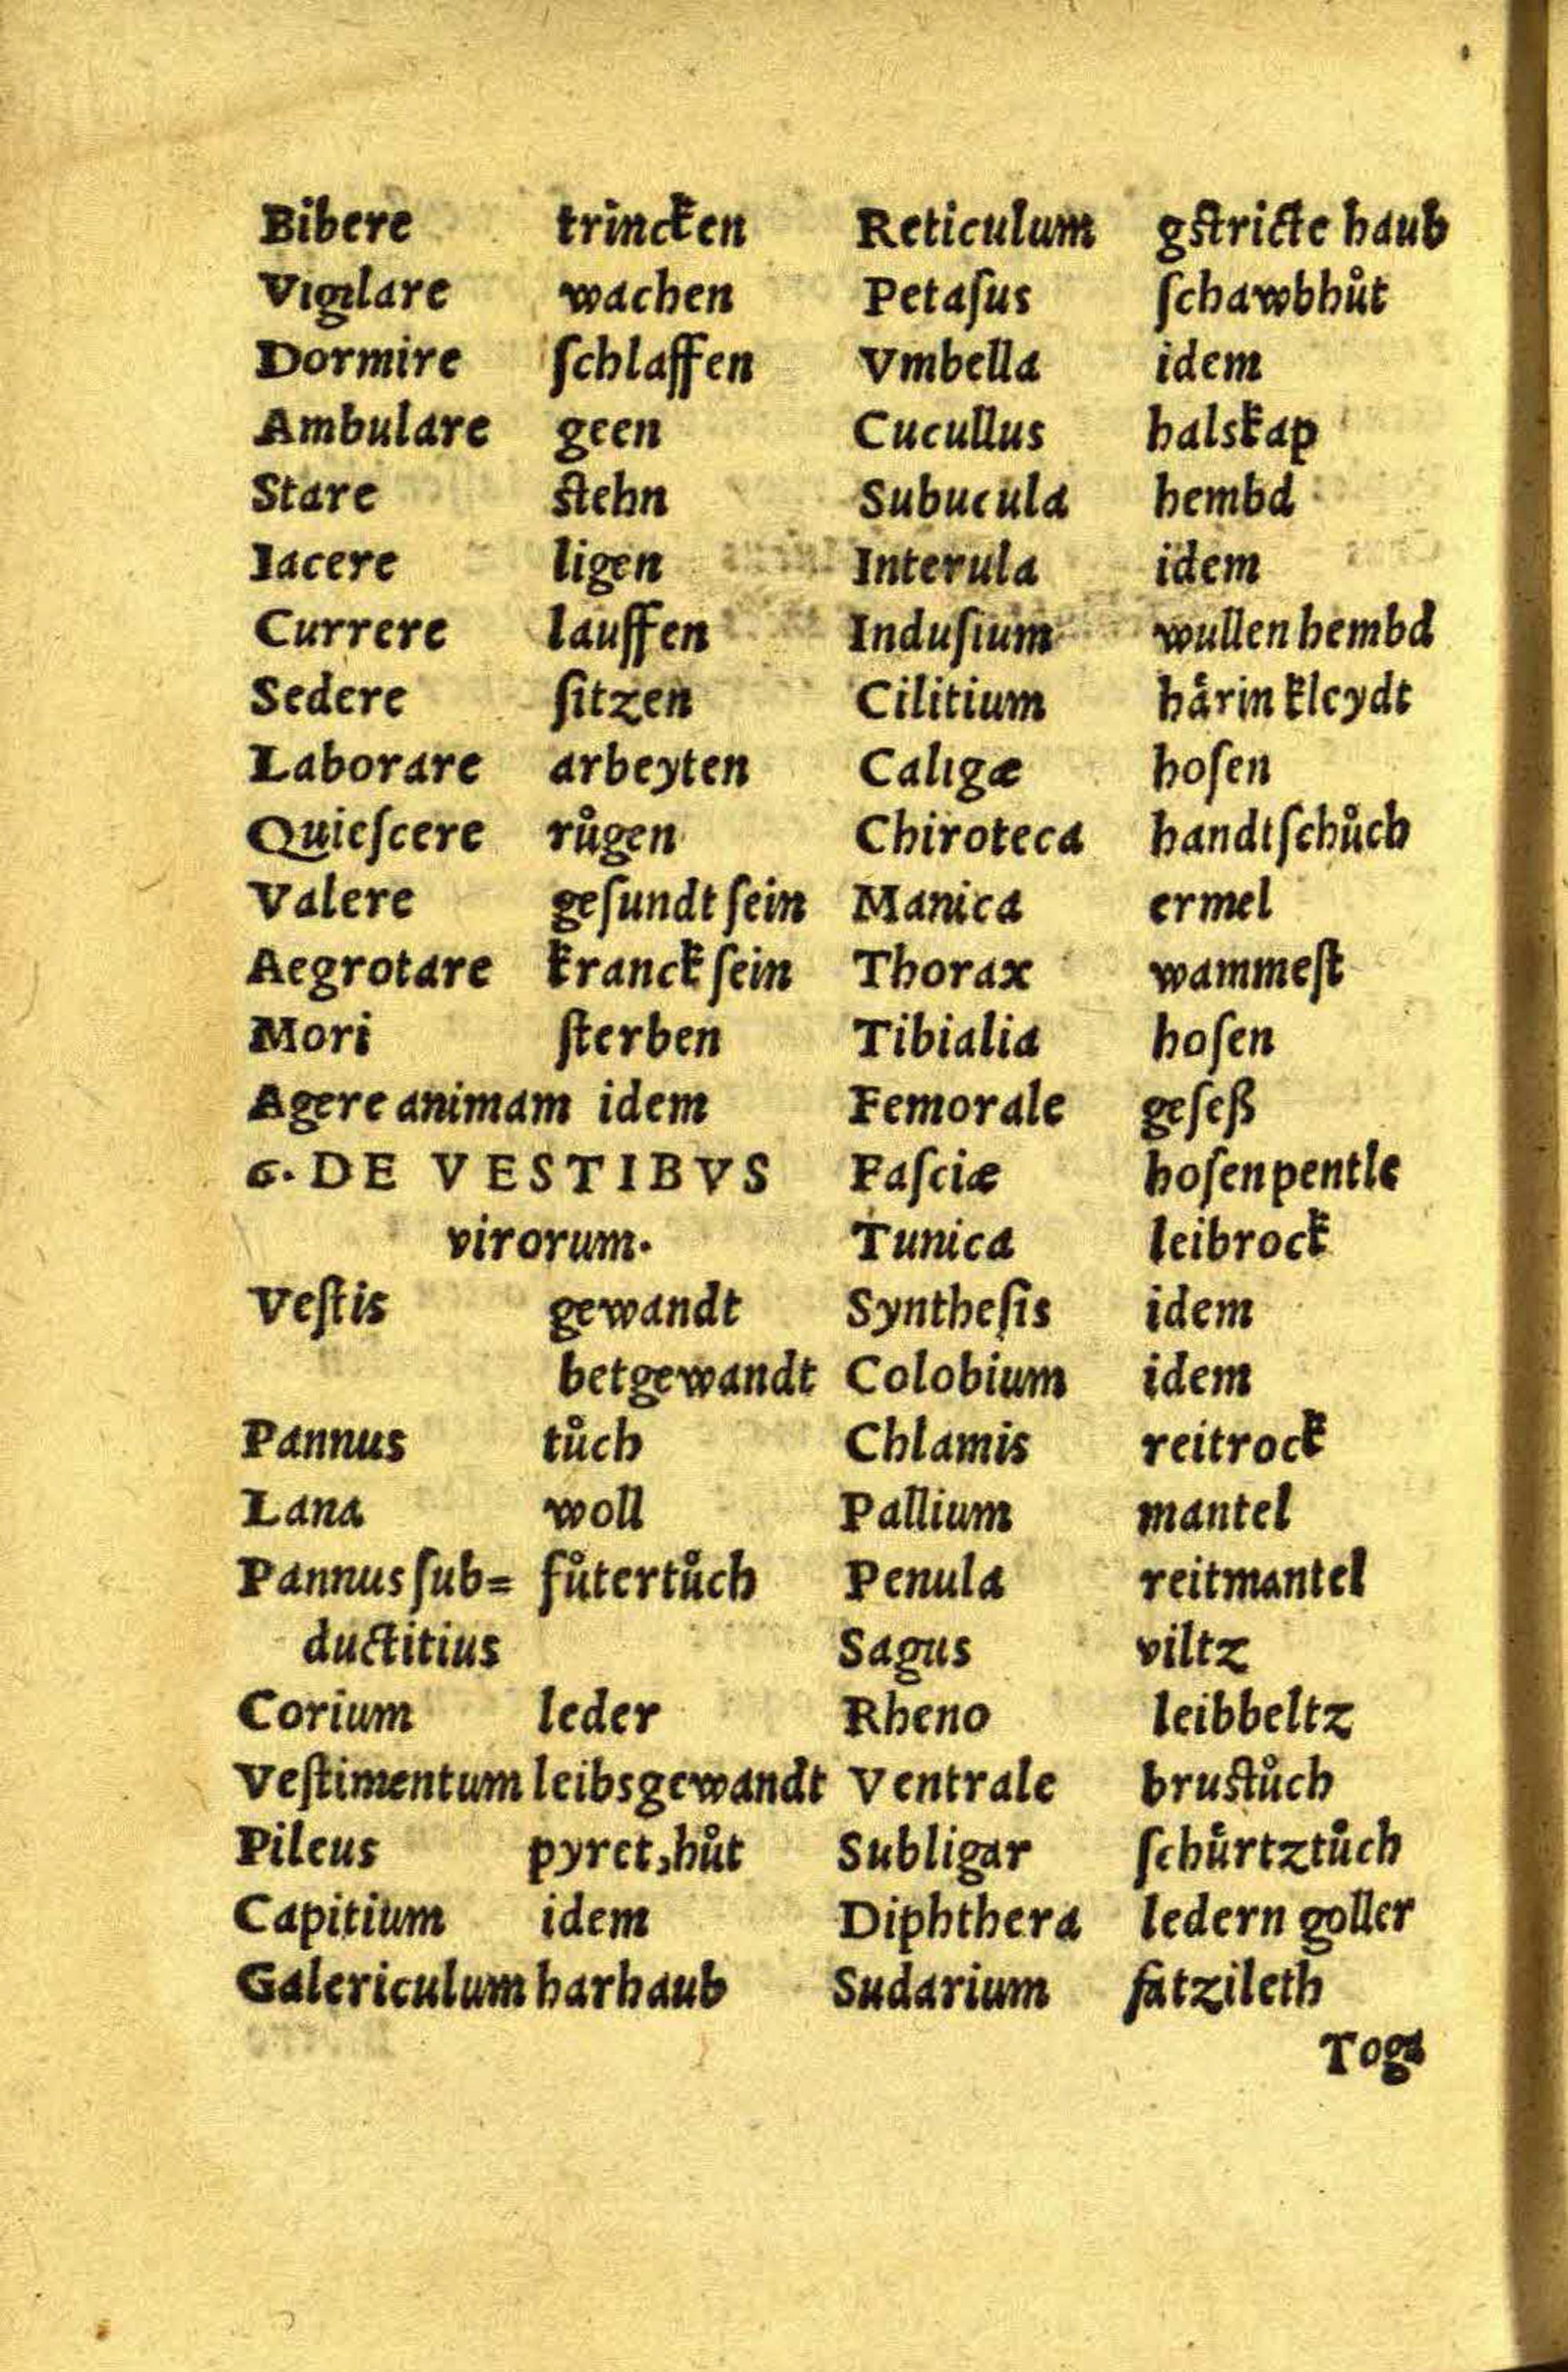 Bibere trincken
Vigilare wachen
Dormire ſchlaffen
Ambulare geen
Stare stehn
Iacere ligen
Currere lauffen
Sedere ſitzen
Laborare arbeyten
Quieſcere růgen
Valere geſundt ſein
Aegrotare kranck ſein
Mori ſterben
Agere animam idem
6. DE VESTIBVS
virorum.
Veſtis gewandt
betgewandt
Pannus tůch
Lana woll
Pannus ſub= fůtertůch
ductitius
Corium leder
Veſtimentum leibsgewandt
Pileus pyret, hůt
Capitium idem
Galericulum harhaub
Reticulum gstricte haub
Petaſus ſchawbhůt
Vmbella idem
Cucullus halskap
Subucula hembd
Interula idem
Induſium wullen hembd
Cilitium hårin kleydt
Caligæ hoſen
Chiroteca handtſchůch
Manica ermel
Thorax wammeſt
Tibialia hoſen
Femorale geſeß
Faſciæ hoſenpentle
Tunica leibrock
Syntheſis idem
Colobium idem
Chlamis reitrock
Pallium mantel
Penula reitmantel
Sagus viltz
Rheno leibbeltz
Ventrale brustůch
Subligar ſchürtztůch
Diphthera ledern goller
Sudarium fatzileth
Toga